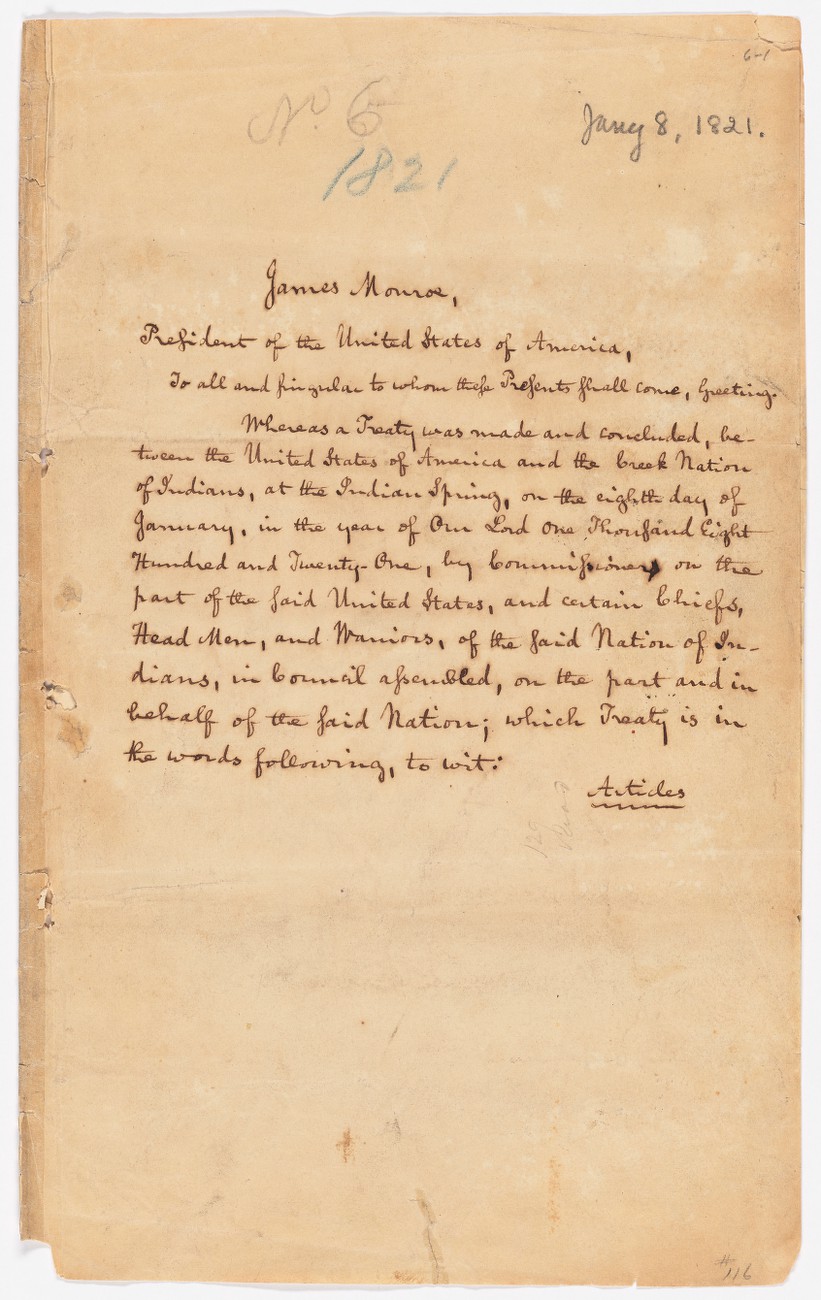 6-1
No. 6
Jany 8, 1821.
1821
James Monroe,
President of the United States of America,
To all and singular to whom these Presents shall come, Greeting.
Whereas a Treaty was made and concluded, be-
tween the United States of America and the Creek Nation
of Indians, at the Indian Spring, on the eighth day of
January, in the year of Our Lord One Thousand Eight
Hundred and Twenty-One, by Commissioners on the
part of the said United States, and certain Chiefs,
Head Men, and Warriors, of the said Nation of In-
dians, in Council assembled, on the part and in
behalf of the said Nation; which Treaty is in
the words following, to wit:
Articles
#116